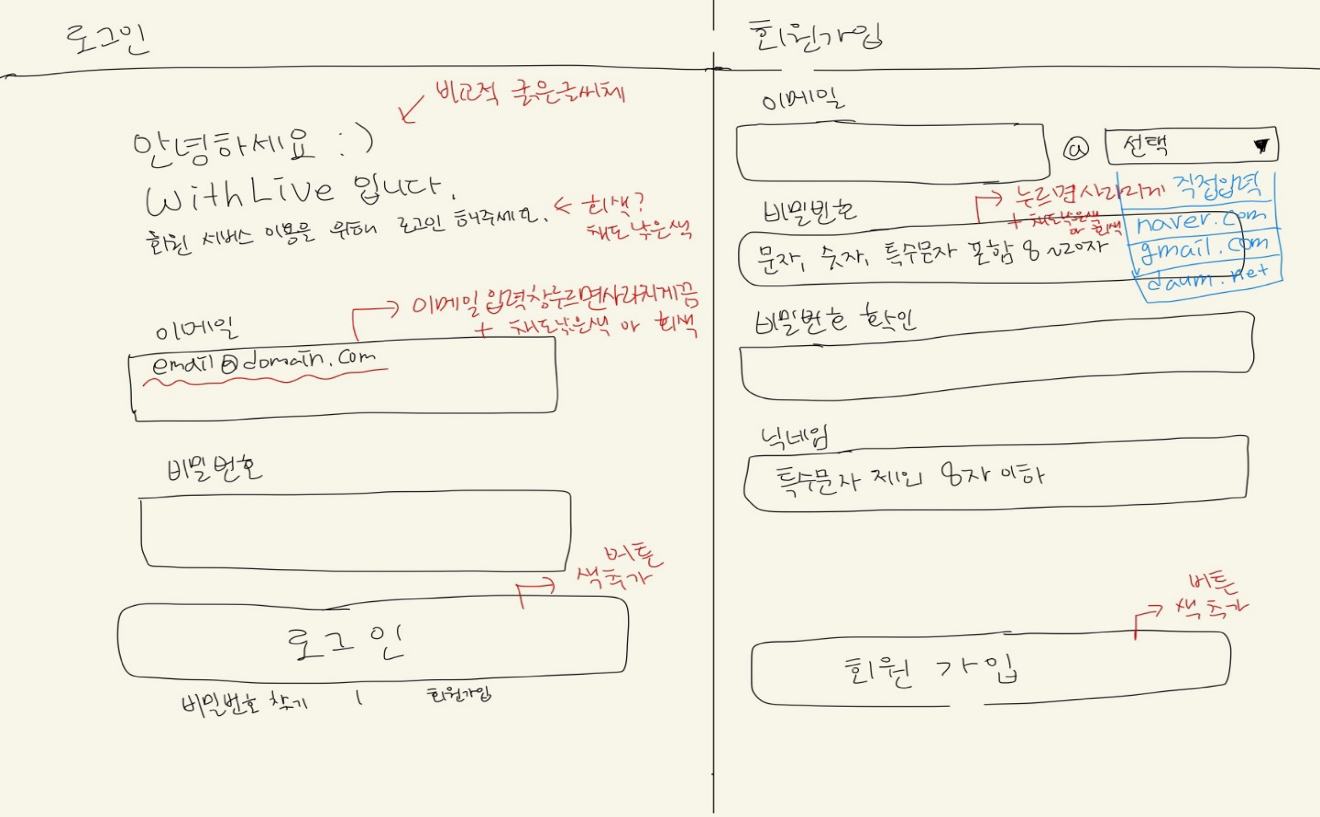 로그인
비교적 굵은글씨체
안녕하세요 :)
WithLive 입니다.
회원 서비스 이용을 위해 로그인 해주세요.
회색?
채도 낮은색
이메일 입력창누르면사라지게끔
+ 채도낮은색 아 회색
이메일
email@domain.com
비밀번호
버튼
색추가
로그인
비밀번호 찾기 | 회원가입
회원가입
이메일
@ 선택 ▼
직접입력
naver.com
gmail.com
daum.net
누르면사라지게
+ 채도낮은색
아 회색
비밀번호
문자, 숫자, 특수문자 포함 8~20자
비밀번호 확인
닉네임
특수문자 제외 8자 이하
버튼
색추가
회원 가입